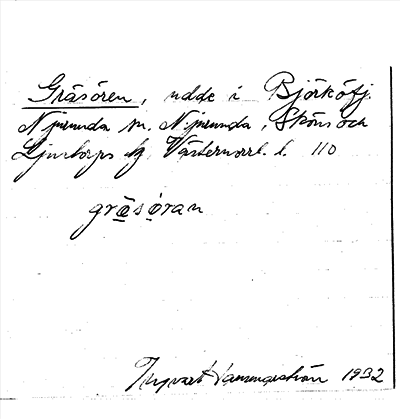 Gräsören, udde i Björköfj.
Njurunda sn. Njurunda, Sköns och
Ljustorps tg Västernorrl. l. 110
gräsøran
Ingvar Hammarström 1932